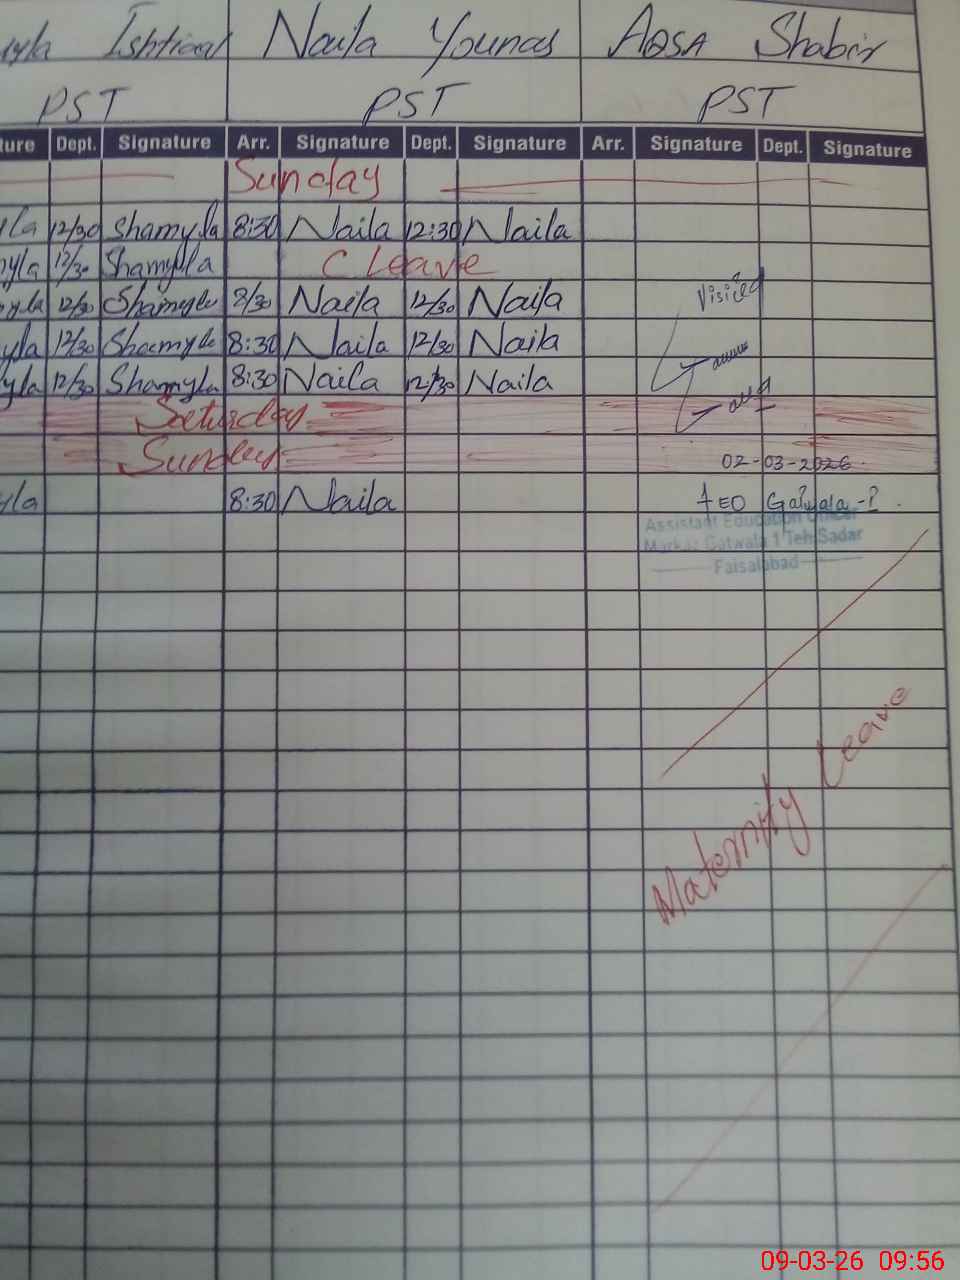 Ishtiaaq Naila Younas AQSA Shabir
PST PST PST
Dept. Signature Arr. Signature Dept. Signature Arr. Signature Dept. Signature
Sunday
12/30 Shamyla 8:30 Naila 12:30 Naila
12/30 Shamyla C Leave
Visited
12/30 Shamyla 8/30 Naila 12/30 Naila
12/30 Shamyla 8:30 Naila 12/30 Naila
12/30 Shamyla 8:30 Naila 12/30 Naila
Saturday
Sunday
02-03-2026
8:30 Naila AEO Gatwala-1
Assistant Education Officer
Markaz Gatwala 1 Teh Sadar
Faisalabad
Maternity Leave
09-03-26 09:56